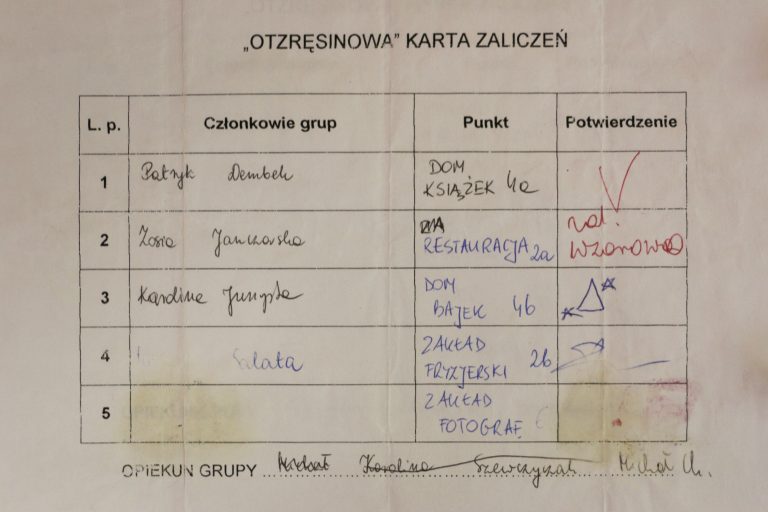 „OTZRĘSINOWA” KARTA ZALICZEŃ
L. p. Członkowie grup Punkt Potwierdzenie
1 Patryk Dembek DOM KSIĄŻEK 4a
2 Zosia Janczarska RESTAURACJA 2a zal. wzorowo
3 Karolina DOM BAJEK 4b
4 Salata ZAKŁAD FRYZJERSKI 2b
5 ZAKŁAD FOTOGRAF.
OPIEKUN GRUPY Michał Karolina Szewczyzak Michał Ch.